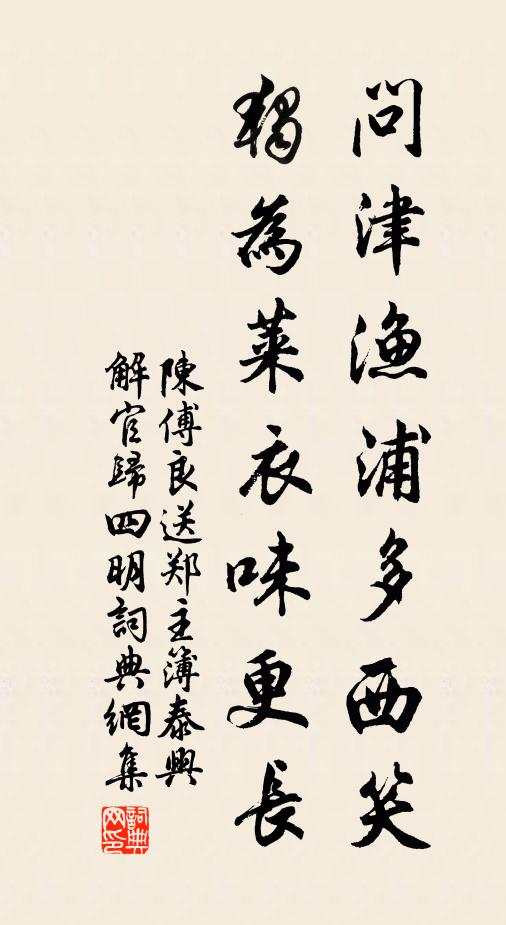 問津漁浦多西笑
獨為萊衣味更長
陳傅良送郑主簿泰興
解官歸四明詞典網集
詞典網印